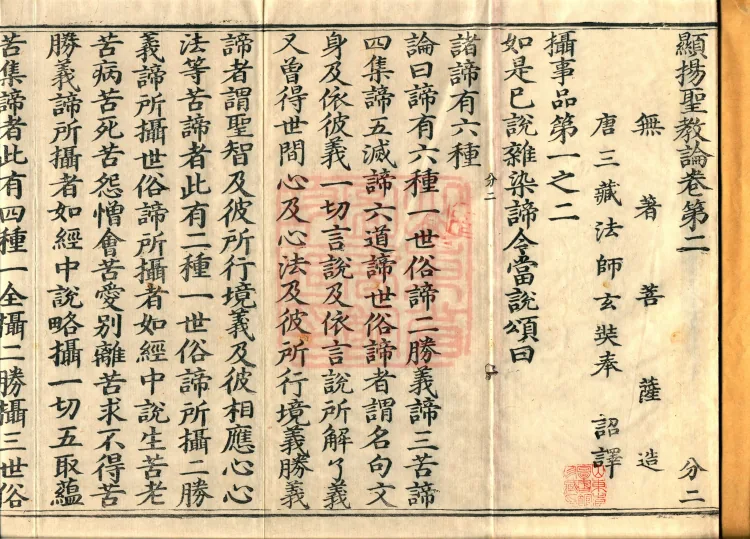 顯揚聖教論卷第二
分二
無著菩薩造
唐三藏法師玄奘奉 詔譯
攝事品第一之二
如是已說雜染諦今當說頌曰
諸諦有六種
分二
論曰諦有六種一世俗諦二勝義諦三苦諦
四集諦五滅諦六道諦世俗諦者謂名句文
身及依彼義一切言說及依言說所解了義
又曾得世間心及心法及彼所行境義勝義
諦者謂聖智及彼所行境義及彼相應心心
法等苦諦者此有二種一世俗諦所攝二勝
義諦所攝世俗諦所攝者如經中說生苦老
苦病苦死苦怨憎會苦愛别離苦求不得苦
勝義諦所攝者如經中說略攝一切五取蘊
苦集諦者此有四種一全攝二勝攝三世俗